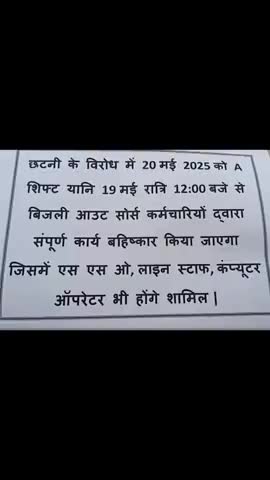 छटनी के विरोध में 20 मई 2025 को A
शिफ्ट यानि 19 मई रात्रि 12:00 बजे से
बिजली आउट सोर्स कर्मचारियों द्वारा
संपूर्ण कार्य बहिष्कार किया जाएगा
जिसमें एस एस ओ, लाइन स्टाफ, कंप्यूटर
ऑपरेटर भी होंगे शामिल |